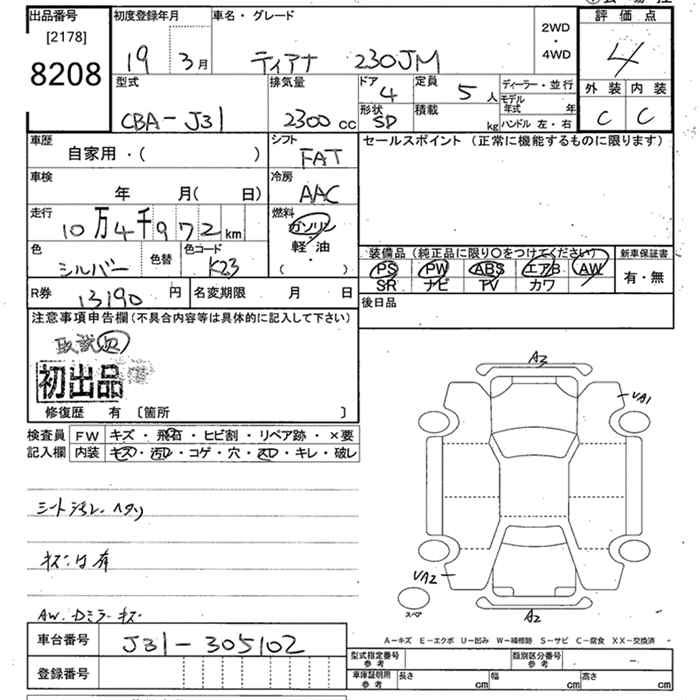 出品番号
[2178]
8208
初度登録年月
19 3月
車名・グレード
ティアナ 230JM
2WD
・
4WD
評価点
4
外装 内装
C C
型式
CBA-J31
排気量
2300cc
ドア
4
定員
5人
形状
SD
積載
kg
ディーラー・並行
モデル年式 年
ハンドル 左・右
車歴
自家用・( )
シフト
FAT
セールスポイント(正常に機能するものに限ります)
車検
年 月( 日)
冷房
AAC
走行
10万4千972km
燃料
ガソリン
軽・油
( )
色
シルバー
色替
色コード
K23
装備品(純正品に限り○をつけてください)
PS PW ABS エアB AW
SR ナビ TV カワ
新車保証書
有・無
R券
13190円
名変期限 月 日
後日品
注意事項申告欄(不具合内容等は具体的に記入して下さい)
取説
初出品
修復歴 有 〔箇所 〕
検査員
記入欄
FW キズ・飛石・ヒビ割・リペア跡・×要
内装 キズ・汚レ・コゲ・穴・スレ・キレ・破レ
シート汚レ、ヘタリ
キズ 有
AW. Dミラーキズ
A3
UA1
UA2
スペア
A2
A-キズ E-エクボ U-凹み W-補修跡 S-サビ C-腐食 XX-交換済
車台番号
J31-305102
登録番号
型式指定番号
参考
類別区分番号
参考
-
車庫証明用
参考
長さ cm
幅 cm
高さ cm